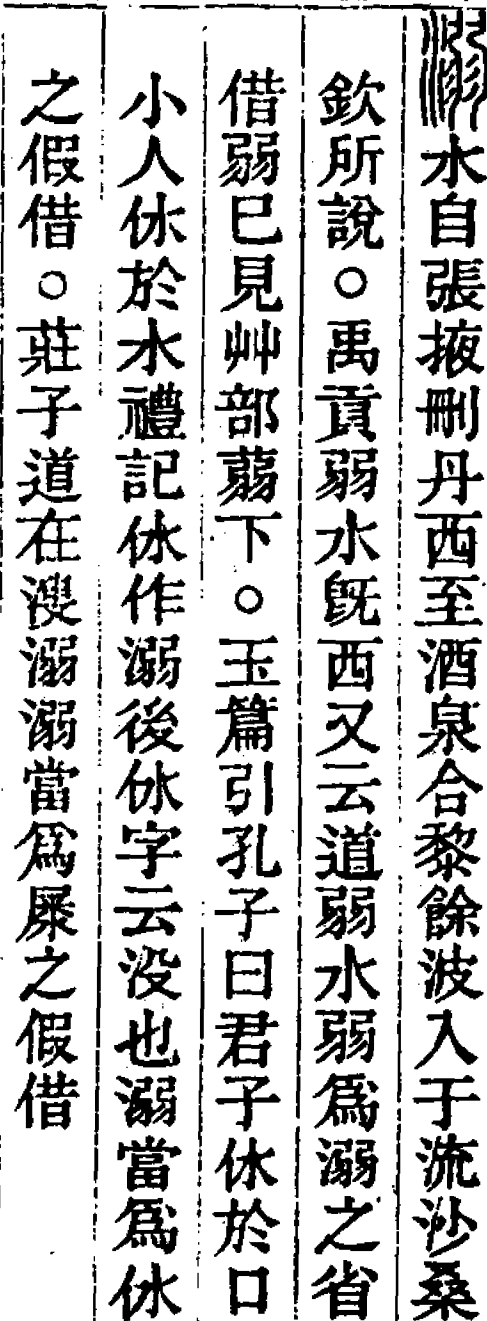 溺水自張掖刪丹西至酒泉合黎餘波入于流沙桑
欽所說○禹貢弱水旣西又云道弱水弱爲溺之省
借弱巳見艸部蒻下○玉篇引孔子曰君子㲻於口
小人㲻於水禮記㲻作溺後㲻字云没也溺當爲㲻
之假借○莊子道在溲溺溺當爲㞙之假借